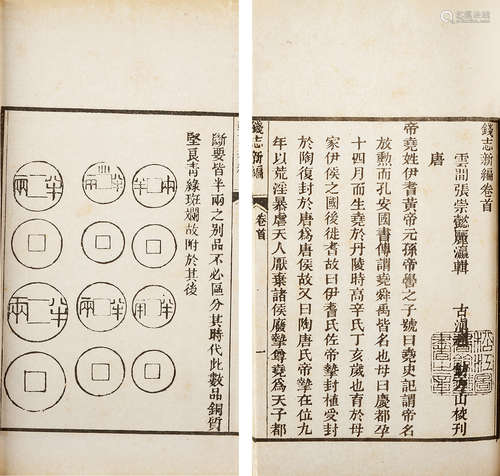 錢志新編卷首
雲間張崇懿麗瀛輯 古滇 山校刊
唐
帝堯姓伊耆黃帝元孫帝嚳之子號曰堯史記謂帝名
放勲而孔安國書傳謂堯舜禹皆名也母曰慶都孕
十四月而生堯於丹陵時高辛氏丁亥歲也育於母
家伊侯之國後徙耆故曰伊耆氏佐帝摯封植愛封
於陶復封於唐爲唐侯故又曰陶唐氏帝摯在位九
年以荒淫暴虐天人厭棄諸侯廢摯尊堯爲天子都
錢志新編 卷首 一
斷要皆半兩之別品不必區分其時代此數品銅質
堅良青綠斑斕故附於其後
半兩
半兩
半兩
半兩